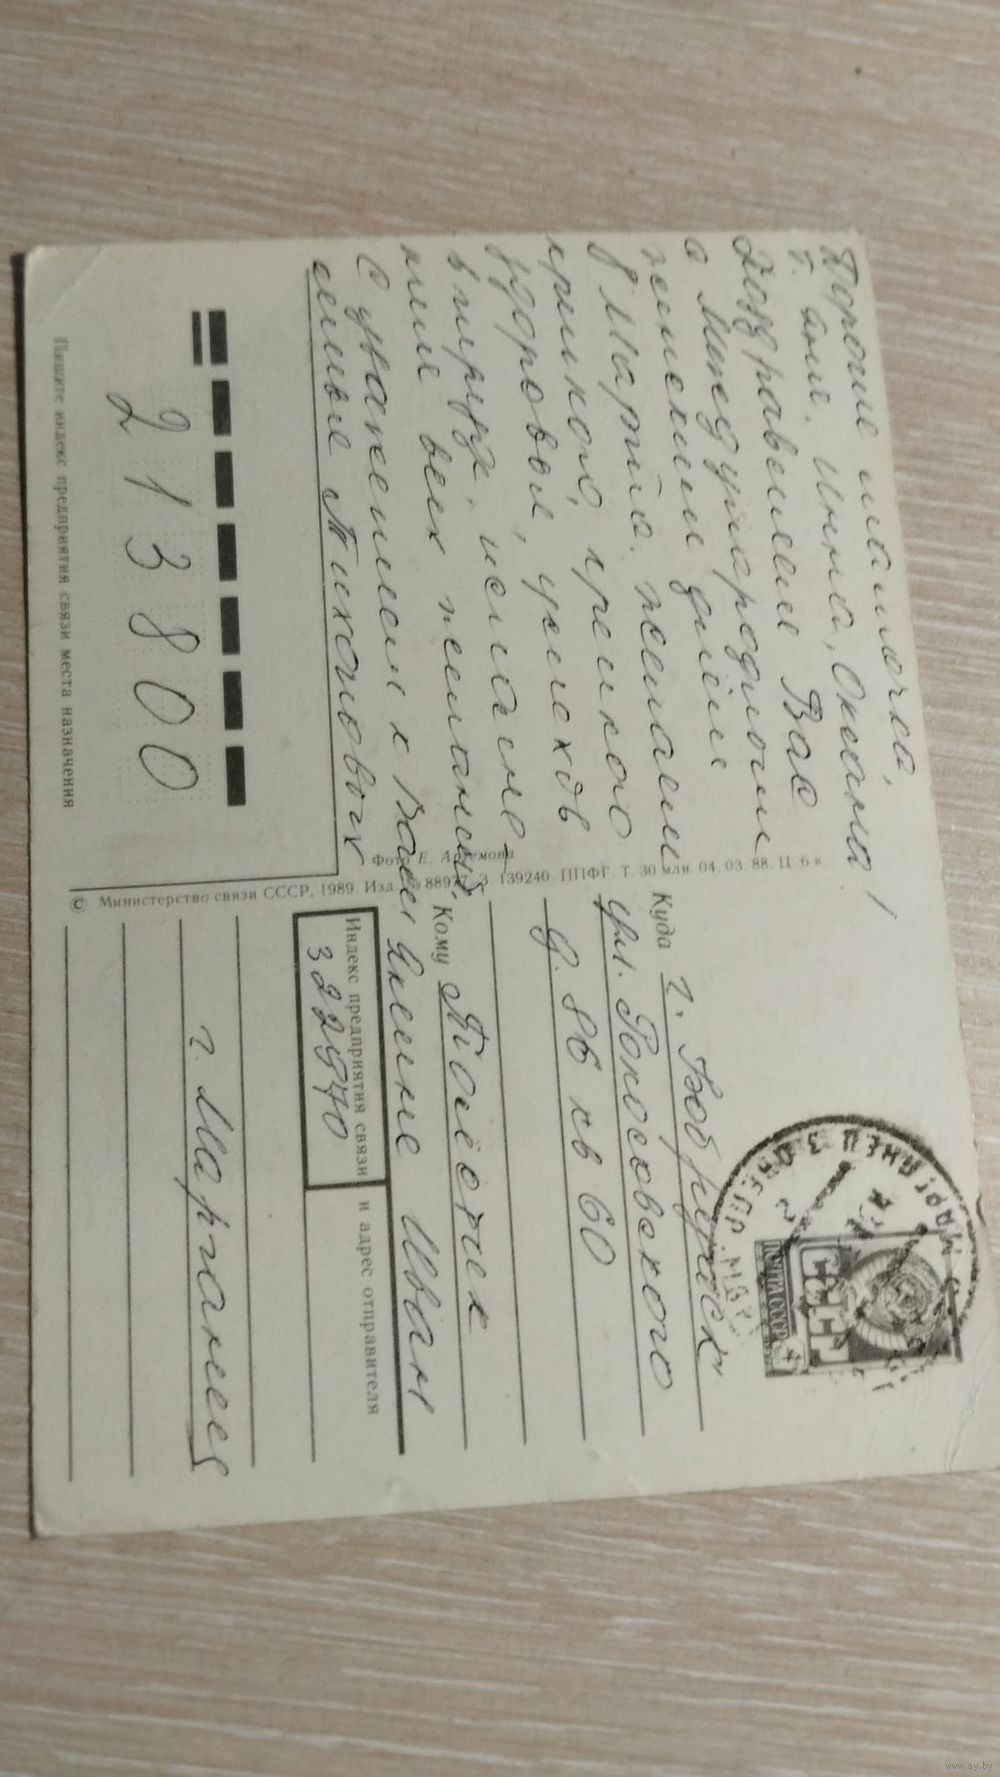 Дорогие мамочка,
т. Аня, Инна, Оксана!
Поздравляем Вас
с Международным
женским днём
8 Марта. желаем
крепкого, крепкого
здоровья, успехов
в труде, исполне-
ния всех желаний.
С уважением к Вам
семья Тихоновых
213800
Пишите индекс предприятия связи места назначения
© Министерство связи СССР, 1989. Изд. № 88977. З. 139240. ППФГ. Т. 30 млн. 04. 03. 88. Ц. 6 к.
Фото Е.
ПОЧТА СССР
Куда г. Бобруйск
ул. Рокоссовского
д. 86 кв 60
Кому Толстик
Янине Иван
Индекс предприятия связи и адрес отправителя
322970
г. Марганец
www.ay.by